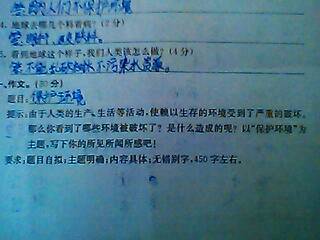 答:因人们不保护环境
4. 地球去哪几个科看病?(2分)
答:眼科,皮肤科。
5. 看到地球这个样子,我们人类该怎么做?(4分)
答:不乱砍树林不污染水资源。
一、作文。(30分)
题目:保护环境
提示:由于人类的生产、生活等活动,使赖以生存的环境受到了严重的破坏。
那么你看到了哪些环境被破坏了?是什么造成的呢?以“保护环境”为
主题,写下你的所见所闻所感吧!
要求:题目自拟;主题明确;内容具体;无错别字,450字左右。